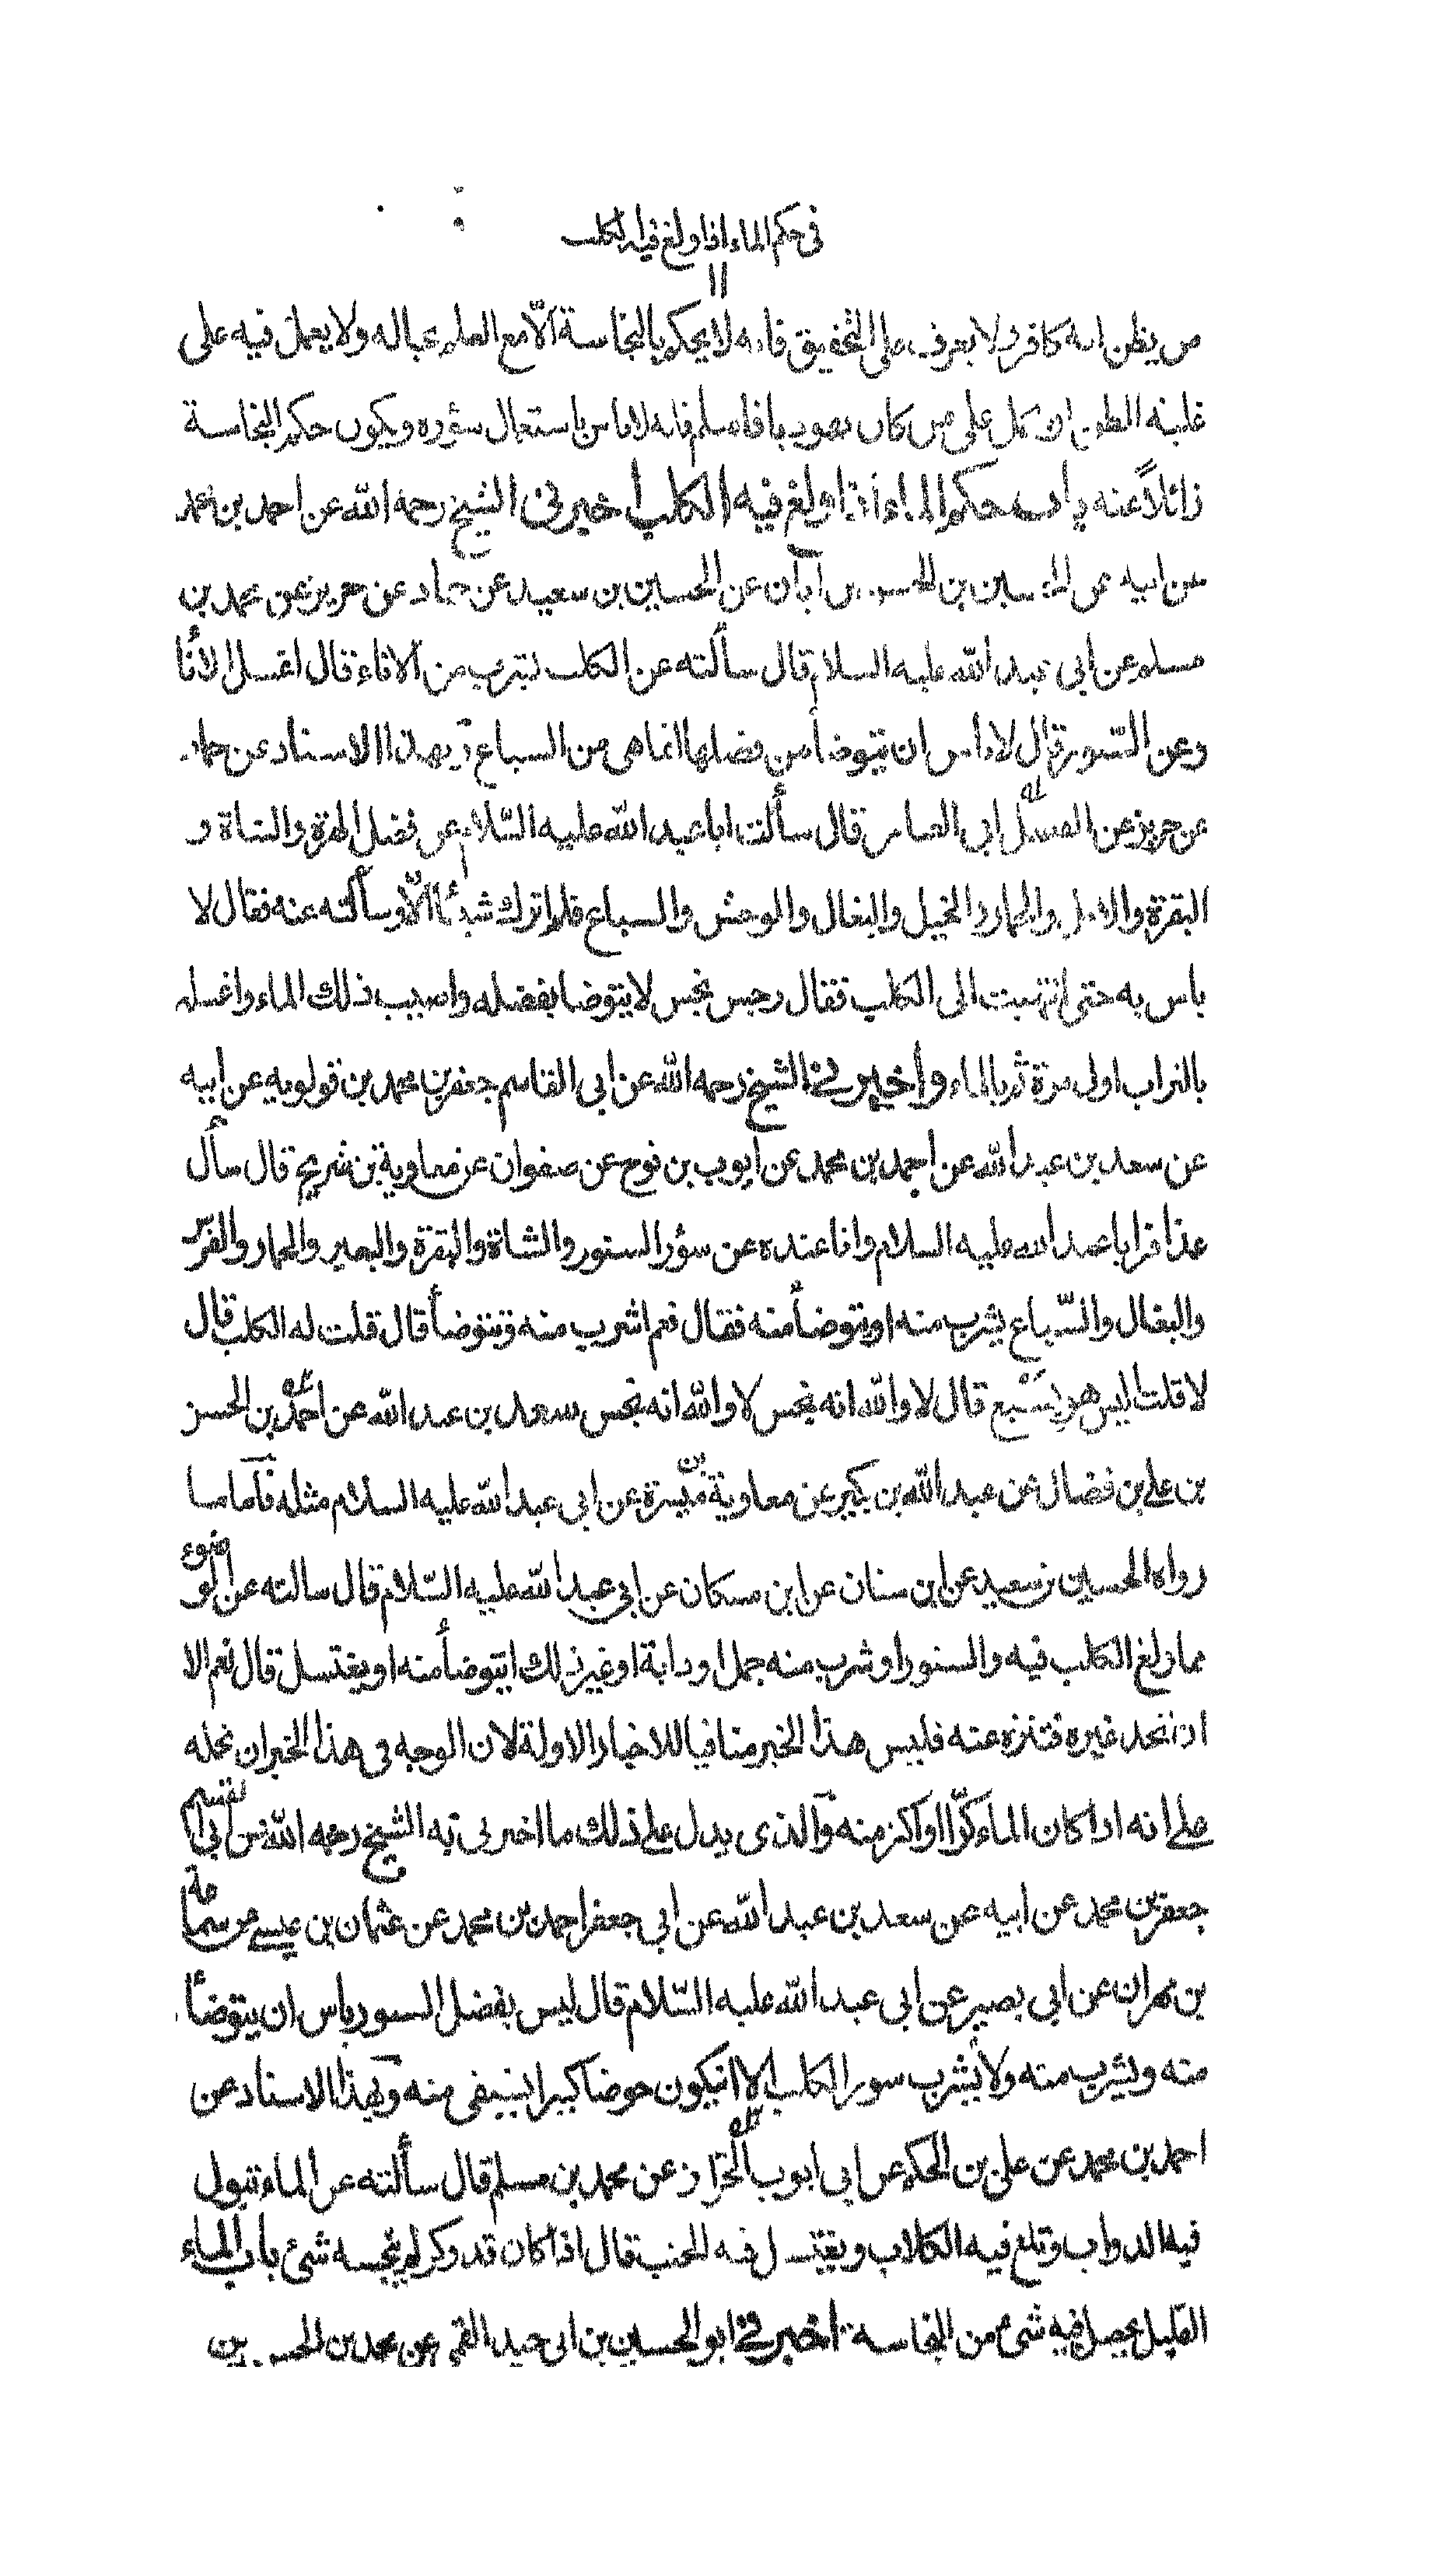 فى حكم الماء اذا ولغ فيه الكلب
١١
من يظن انه كافر ولا يعرف على التحقيق فانه لا يحكم بالنجاسة الّا مع العلم بحاله ولا يعمل فيه على
غلبة الظن او يحمل على من كان يهوديا فاسلم فانه لا باس باستعمال سؤره ويكون حكم النجاسة
زائلاً عنه باب حكم الماء اذا ولغ فيه الكلب اخبرنى الشيخ رحمه الله عن احمد بن محمد
عن ابيه عن الحسين بن الحسن بن ابان عن الحسين بن سعيد عن حماد عن حريز عن محمد بن
مسلم عن ابى عبد الله عليه السلام قال سألته عن الكلب يشرب من الاناء قال اغسل الانآء
وعن السّنور قال لا باس ان يتوضأ من فضلها انما هى من السباع وبهذا الاسناد عن حماد
عن حريز عن الفضل ابى العباس قال سألت ابا عبد الله عليه السّلام عن فضل الهرة والشاة و
البقرة والابل والحمار والخيل والبغال والوحش والسباع فلم اترك شيئا الّا وسألته عنه فقال لا
باس به حتى انتهيت الى الكلب فقال رجس نجس لا يتوضا بفضله واصبب ذلك الماء واغسله
بالتراب اول مرة ثم بالماء واخبرنى الشيخ رحمه الله عن ابى القاسم جعفر بن محمد بن قولويه عن ابيه
عن سعد بن عبد الله عن احمد بن محمد عن ايوب بن نوح عن صفوان عن معاوية بن شريح قال سأل
عذافر ابا عبد الله عليه السلام وانا عنده عن سؤر السنور والشاة والبقرة والبعير والحمار والفرس
والبغال والسّباع يشرب منه او يتوضأ منه فقال نعم اشرب منه وتوضأ قال قلت له الكلب قال
لا قلت اليس هو بسبع قال لا والله انه نجس لا والله انه نجس سعد بن عبد الله عن احمد بن الحسن
بن على بن فضال عن عبد الله بن بكير عن معاوية بن ميسرة عن ابى عبد الله عليه السلام مثله فآما ما
رواه الحسين بن سعيد عن ابن سنان عن ابن مسكان عن ابى عبد الله عليه السّلام قال سالته عن الوضوء
مما ولغ الكلب فيه والسنور او شرب منه جمل او دابة او غير ذلك ايتوضأ منه او يغتسل قال نعم الا
ان تجد غيره فتنزه عنه فليس هذا الخبر منافيا للاخبار الاولة لان الوجه فى هذا الخبر ان نحمله
على انه اذا كان الماء كرّا او اكثر منه وآلذى يدل على ذلك ما اخبرنى به الشيخ رحمه الله عن ابى القسم
جعفر بن محمد عن ابيه عن سعد بن عبد الله عن ابى جعفر احمد بن محمد عن عثمان بن عيسى عن سماعة
بن مهران عن ابى بصير عن ابى عبد الله عليه السّلام قال ليس بفضل السنور باس ان يتوضأ
منه ويشرب منه ولا يشرب سور الكلب الا ان يكون حوضا كبيرا يستقى منه وبهذا الاسناد عن
احمد بن محمد عن على بن الحكم عن ابى ايوب الخزاز عن محمد بن مسلم قال سألته عن الماء تبول
فيه الدواب وتلغ فيه الكلاب ويغتسل فيه الجنب قال اذا كان قدر كر لم ينجسه شئ باب الماء
القليل يحصل فيه شئ من النجاسة اخبرنى ابو الحسين بن ابى جيد القمى عن محمد بن الحسن بن